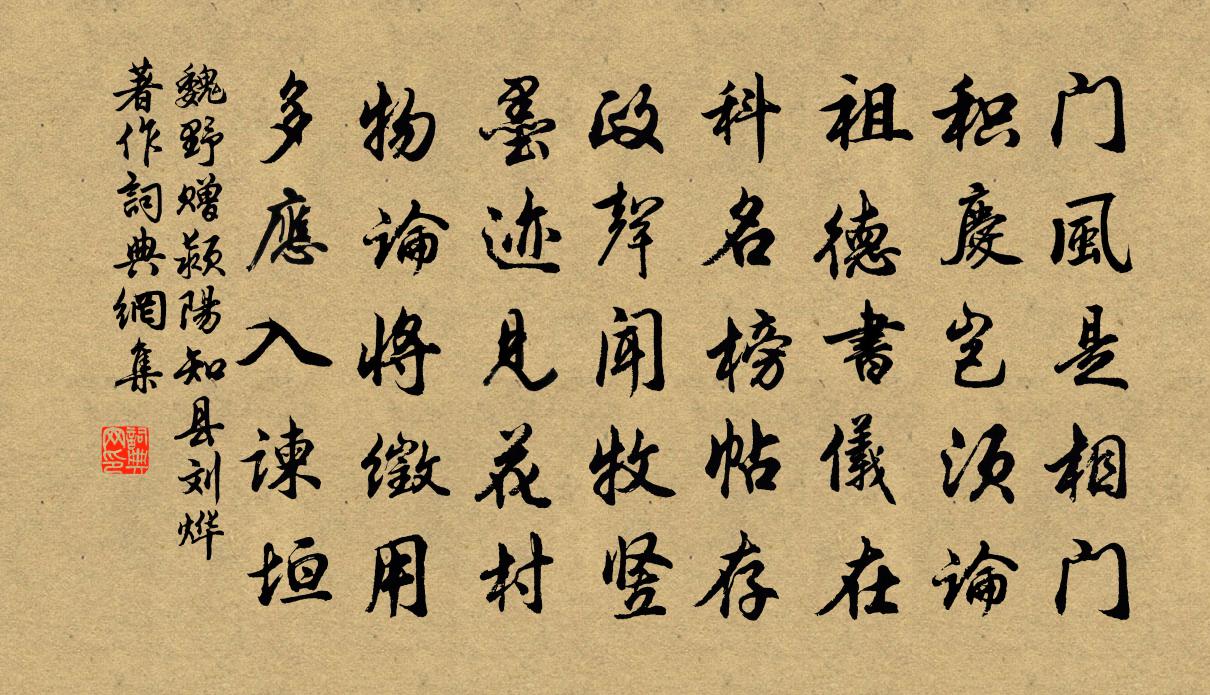 门風是相门
积慶岂须論
祖德書儀在
科名榜帖存
政聲聞牧竖
墨迹見花村
物論将徵用
多應入諫垣
魏野赠颍陽知县刘烨
著作詞典網集
詞典网印